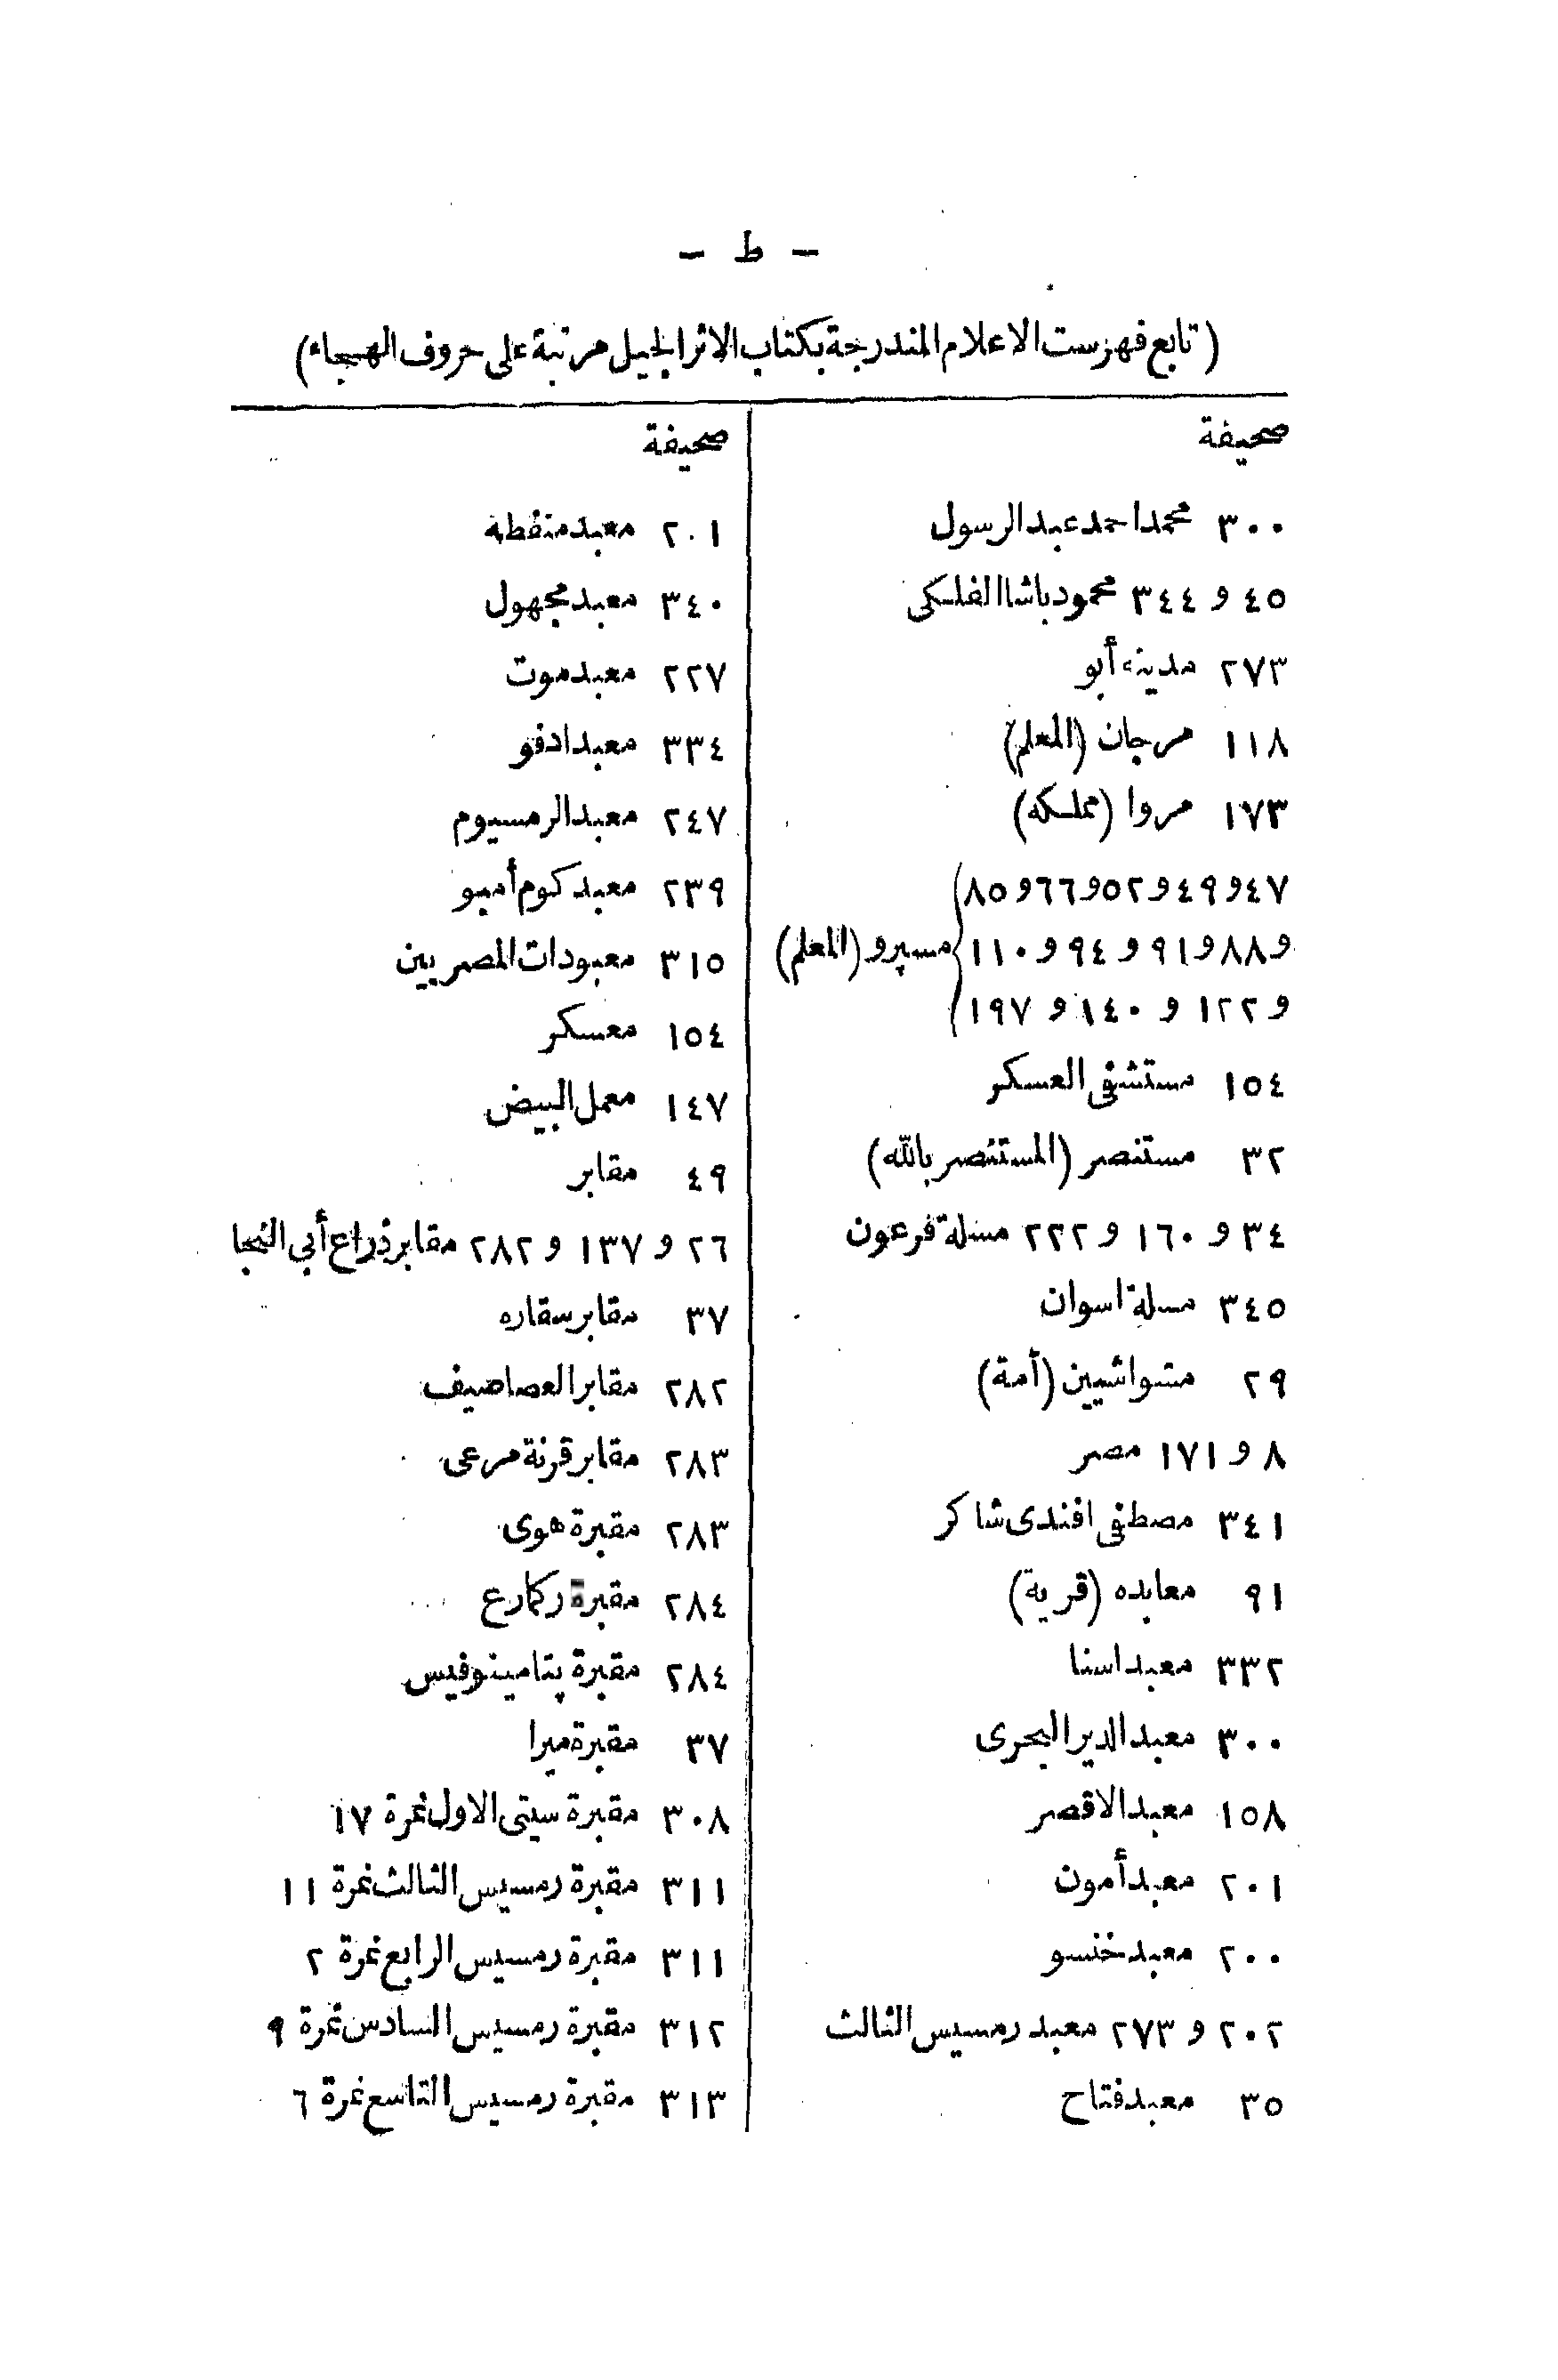 - ط -
(تابع فهرست الاعلام المندرجة بكتاب الاثر الجليل مرتبة على حروف الهجاء)
صحيفة
٣٠٠ محمد احمد عبد الرسول
٤٥ و ٣٤٤ محمود باشا الفلكى
٢٧٣ مدينة أبو
١١٨ مرجان (المعلم)
١٧٣ مروا (مملكه)
٤٧ و٤٩ و٥٢ و٦٦ و٨٥
و٨٨ و٩١ و ٩٤ و١١٠ مسپرو (المعلم)
و ١٢٢ و ١٤٠ و ١٩٧
١٥٤ مستشفى العسكر
٣٢ مستنصر (المستنصر بالله)
٣٤ و ١٦٠ و ٢٢٢ مسلة فرعون
٣٤٥ مسلة اسوان
٢٩ مشواشيين (أمة)
٨ و ١٧١ مصر
٣٤١ مصطفى افندى شاكر
٩١ معابده (قرية)
٣٣٢ معبد اسنا
٣٠٠ معبد الدير البحرى
١٥٨ معبد الاقصر
٢٠١ معبد أمون
٢٠٠ معبد خنسو
٢٠٢ و ٢٧٣ معبد رمسيس الثالث
٣٥ معبد فتاح
صحيفة
٢٠١ معبد منفطه
٣٤٠ معبد مجهول
٢٢٧ معبد موت
٣٣٤ معبد ادفو
٢٤٧ معبد الرمسيوم
٢٣٩ معبد كوم أمبو
٣١٥ معبودات المصريين
١٥٤ معسكر
١٤٧ معمل البيض
٤٩ مقابر
٢٦ و ١٣٧ و ٢٨٢ مقابر ذراع أبى النجا
٣٧ مقابر سقاره
٢٨٢ مقابر العصاصيف
٢٨٣ مقابر قرنة مرعى
٢٨٣ مقبرة هوى
٢٨٤ مقبرة ركمارع
٢٨٤ مقبرة پتامينوفيس
٣٧ مقبرة ميرا
٣٠٨ مقبرة سيتى الاول نمرة ١٧
٣١١ مقبرة رمسيس الثالث نمرة ١١
٣١١ مقبرة رمسيس الرابع نمرة ٢
٣١٢ مقبرة رمسيس السادس نمرة ٩
٣١٣ مقبرة رمسيس التاسع نمرة ٦